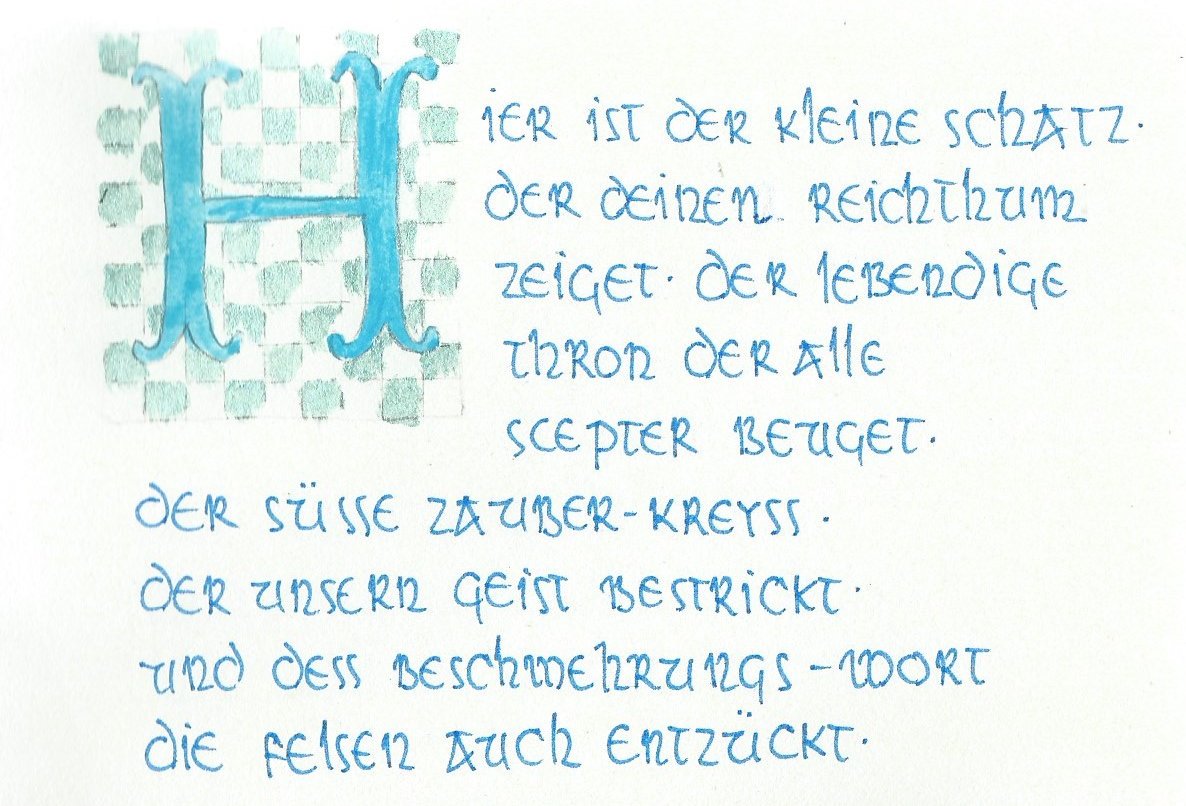 Hier ist der kleine Schatz.
der deinen Reichthum
zeiget. der lebendige
Thron der alle
Scepter beuget.
der süsse Zauber-Kreyss.
der unsern Geist bestrickt.
und dess Beschwehrungs-Wort
die Felsen auch entzückt.